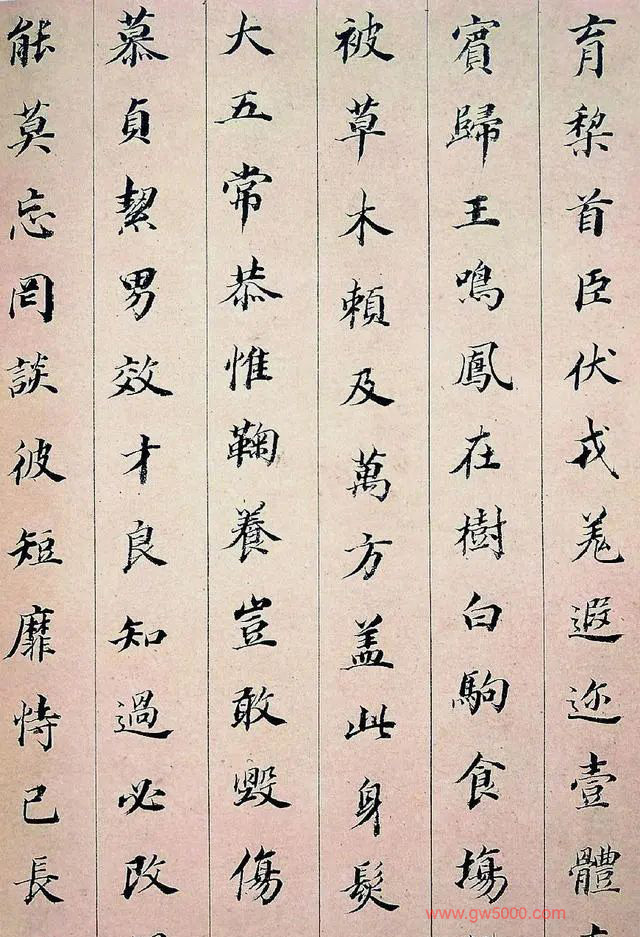 育黎首臣伏戎羌遐迩壹體
賓歸王鳴鳳在樹白駒食場
被草木賴及萬方盖此身髮
大五常恭惟鞠養豈敢毀傷
慕貞絜男效才良知過必改
能莫忘罔談彼短靡恃己長
www.gw5000.com